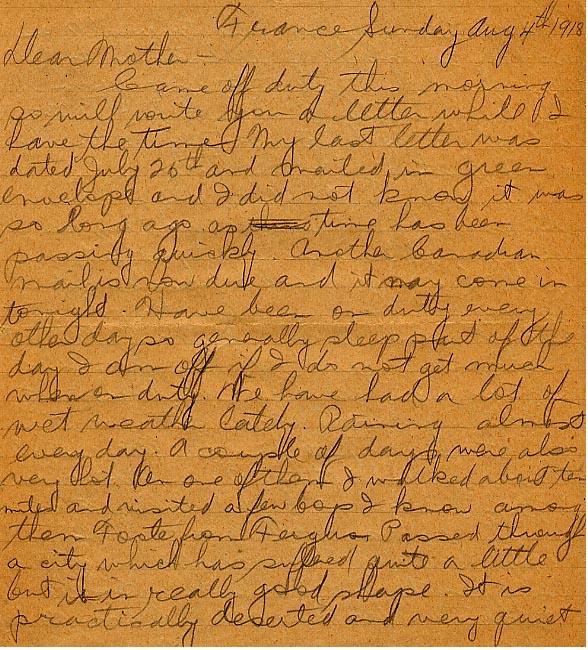 France Sunday Aug 4th 1918
Dear Mother -
Came off duty this morning
so will write you a letter while I
have the time. My last letter was
dated July 20th and mailed in green
envelope and I did not know it was
so long ago as time has been
passing quickly. Another Canadian
mail is now due and it may come in
tonight. Have been on duty every
other day so generally sleep part of the
day I am off if I do not get much
when on duty. We have had a lot of
wet weather lately. Raining almost
every day. A couple of days were also
very hot. On one of them I walked about ten
miles and visited a few boys I know among
them Foote from Fergus. Passed through
a city which has suffered quite a little
but is in really good shape. It is
practically deserted and very quiet